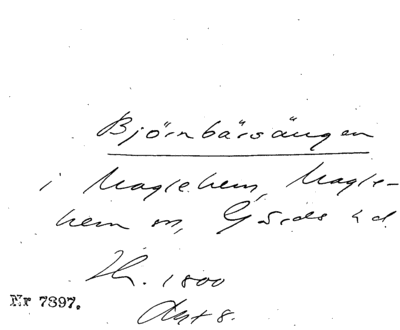 Björnbärsängen
i Maglehem, Magle-
hem sn, Gärds hd.
1800
Akt 8.
Nr 7397.